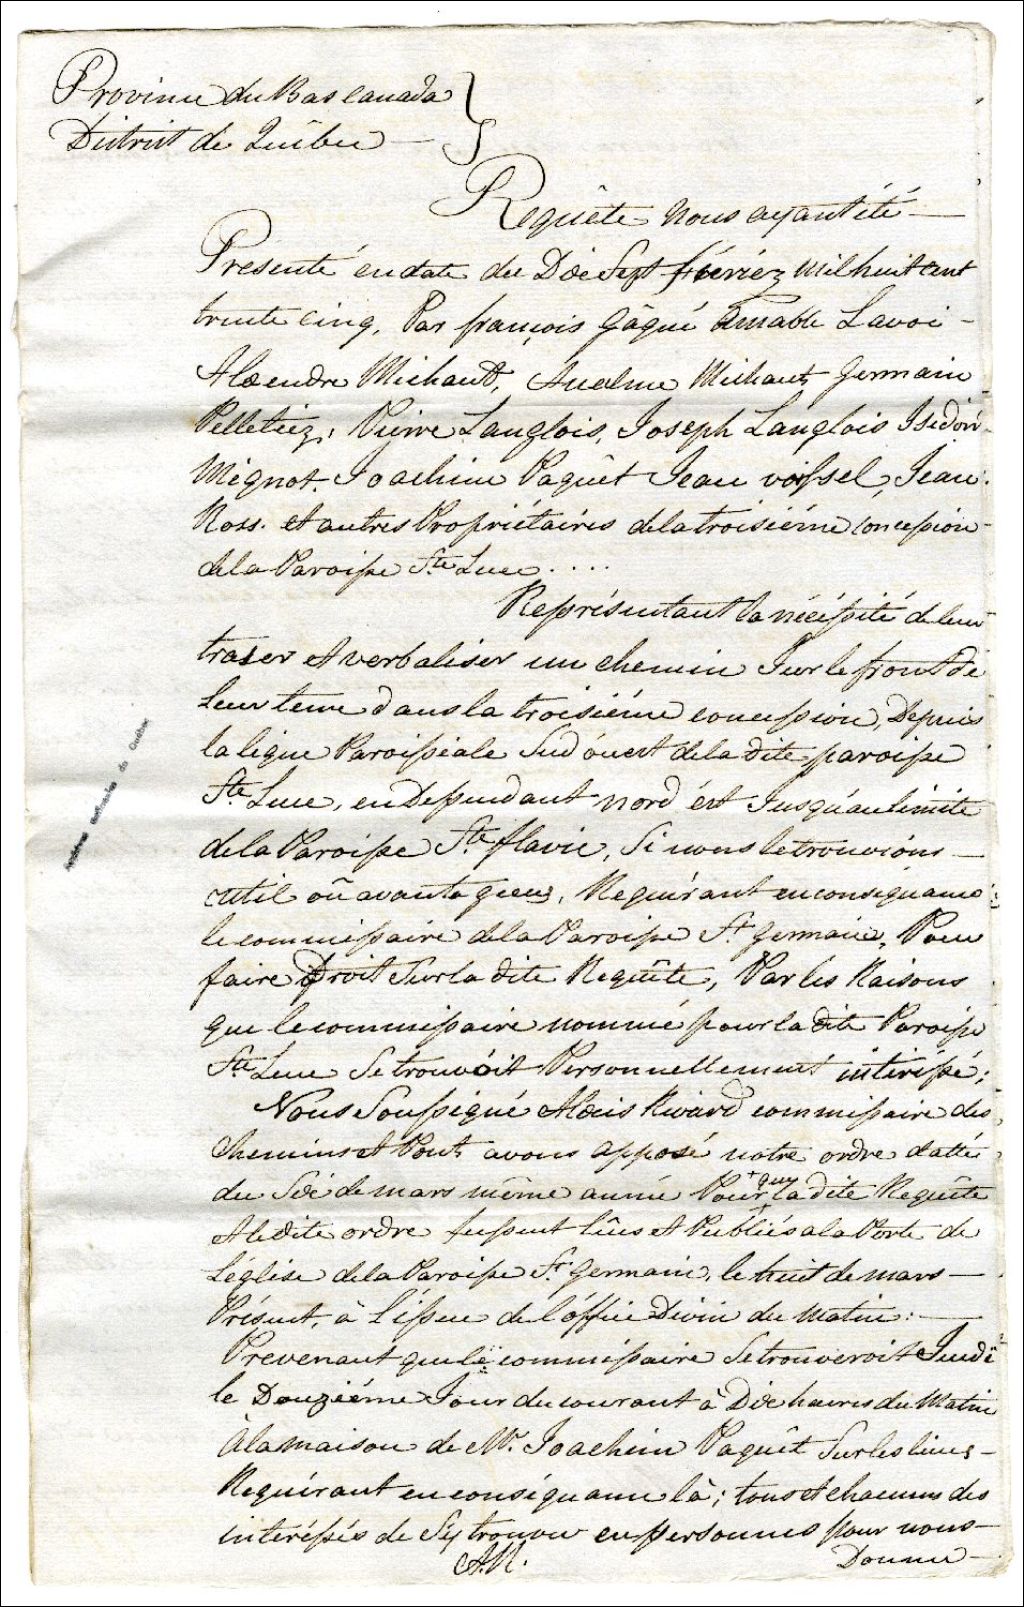 Province du Bas Canada
District de Quêbec
Requête nous ayant été
Présenté en date du Dix Sept février mil huit cent
trente cinq, Par françois Gâgné Amable Lavoi
Alexendre Michaut, Anselme Michaut Germain
Pelletiez, Pierre Langlois, Joseph Langlois Isidor
Mignot. Joachim Paquêt Jean voissel, Jean
Ross. et autres Propriétaires de la troisiéme concession
de la Paroisse Ste Luce ....
Représentant la nécéssité de leur
traser et verbaliser un chemin Sur le front de
Leur terre dans la troisiéme concession, Depuis
la ligne Paroissiale Sud óuest de la dite paroisse
Ste Luce, en Dessendant nord ést Jusqu'au limite
de la Paroisse Ste flavie, Si nous le trouvions
util où avantageux, Requérant en conséquance
le commissaire de la Paroisse St Germain, Pour
faire Droit Sur la dite Requête, Par les Raisons
que le commissaire nommé pour la dite Paroisse
Ste Luce Se trouvoit Personnellement intéréssé;
Nous Soussigné Alexis Rivard commissaire des
Chemins et Ponts avons apposé notre ordre dattée
du Six de mars même année Pour que la dite Requête
et le dite ordre fussent lûes et Publiés a la Porte de
L'église de la Paroisse St Germain, le huit de mars
Présent, à L'issue de l'óffice Divin du Matin:
Prevenant que le commissaire Se trouveroit Jeudi
le Douziéme Jour du courant à Dix heures du Matin
À la maison de Mr. Joachim Paquêt Sur les lieux
Requérant en conséquance là; tous et chacuns des
intéréssés de S'y trouver en personnes pour nous
A.R.
Donner